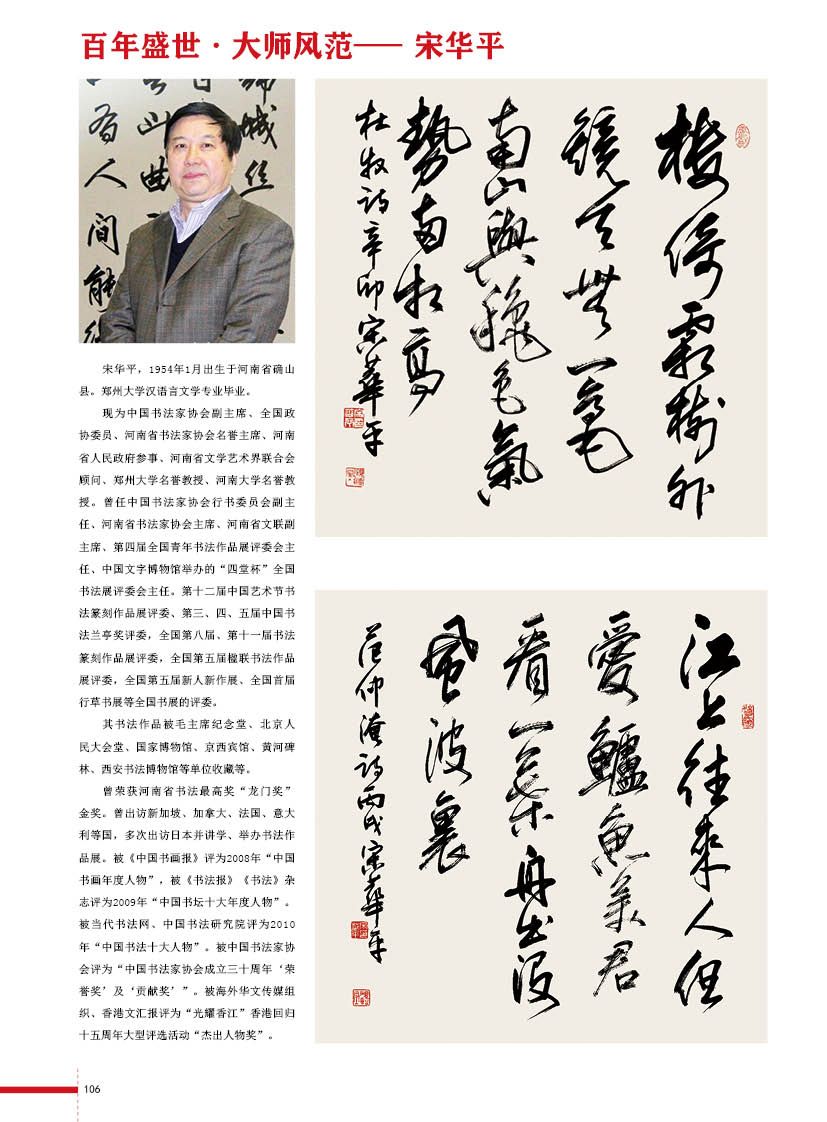 百年盛世·大师风范—— 宋华平
宋华平，1954年1月出生于河南省确山
县。郑州大学汉语言文学专业毕业。
现为中国书法家协会副主席、全国政
协委员、河南省书法家协会名誉主席、河南
省人民政府参事、河南省文学艺术界联合会
顾问、郑州大学名誉教授、河南大学名誉教
授。曾任中国书法家协会行书委员会副主
任、河南省书法家协会主席、河南省文联副
主席、第四届全国青年书法作品展评委会主
任、中国文字博物馆举办的“四堂杯”全国
书法展评委会主任。第十二届中国艺术节书
法篆刻作品展评委、第三、四、五届中国书
法兰亭奖评委，全国第八届、第十一届书法
篆刻作品展评委，全国第五届楹联书法作品
展评委，全国第五届新人新作展、全国首届
行草书展等全国书展的评委。
其书法作品被毛主席纪念堂、北京人
民大会堂、国家博物馆、京西宾馆、黄河碑
林、西安书法博物馆等单位收藏等。
曾荣获河南省书法最高奖“龙门奖”
金奖。曾出访新加坡、加拿大、法国、意大
利等国，多次出访日本并讲学、举办书法作
品展。被《中国书画报》评为2008年“中国
书画年度人物”，被《书法报》《书法》杂
志评为2009年“中国书坛十大年度人物”。
被当代书法网、中国书法研究院评为2010
年“中国书法十大人物”。被中国书法家协
会评为“中国书法家协会成立三十周年‘荣
誉奖’及‘贡献奖’”。被海外华文传媒组
织、香港文汇报评为“光耀香江”香港回归
十五周年大型评选活动“杰出人物奖”。
楼倚霜树外
镜天无一毫
南山與穐色氣
勢两相高
杜牧诗辛卯宋華平
江上往來人但
愛鱸魚美君
看一葉舟出没
風波裏
范仲淹诗丙戌宋華平
有人間能
106